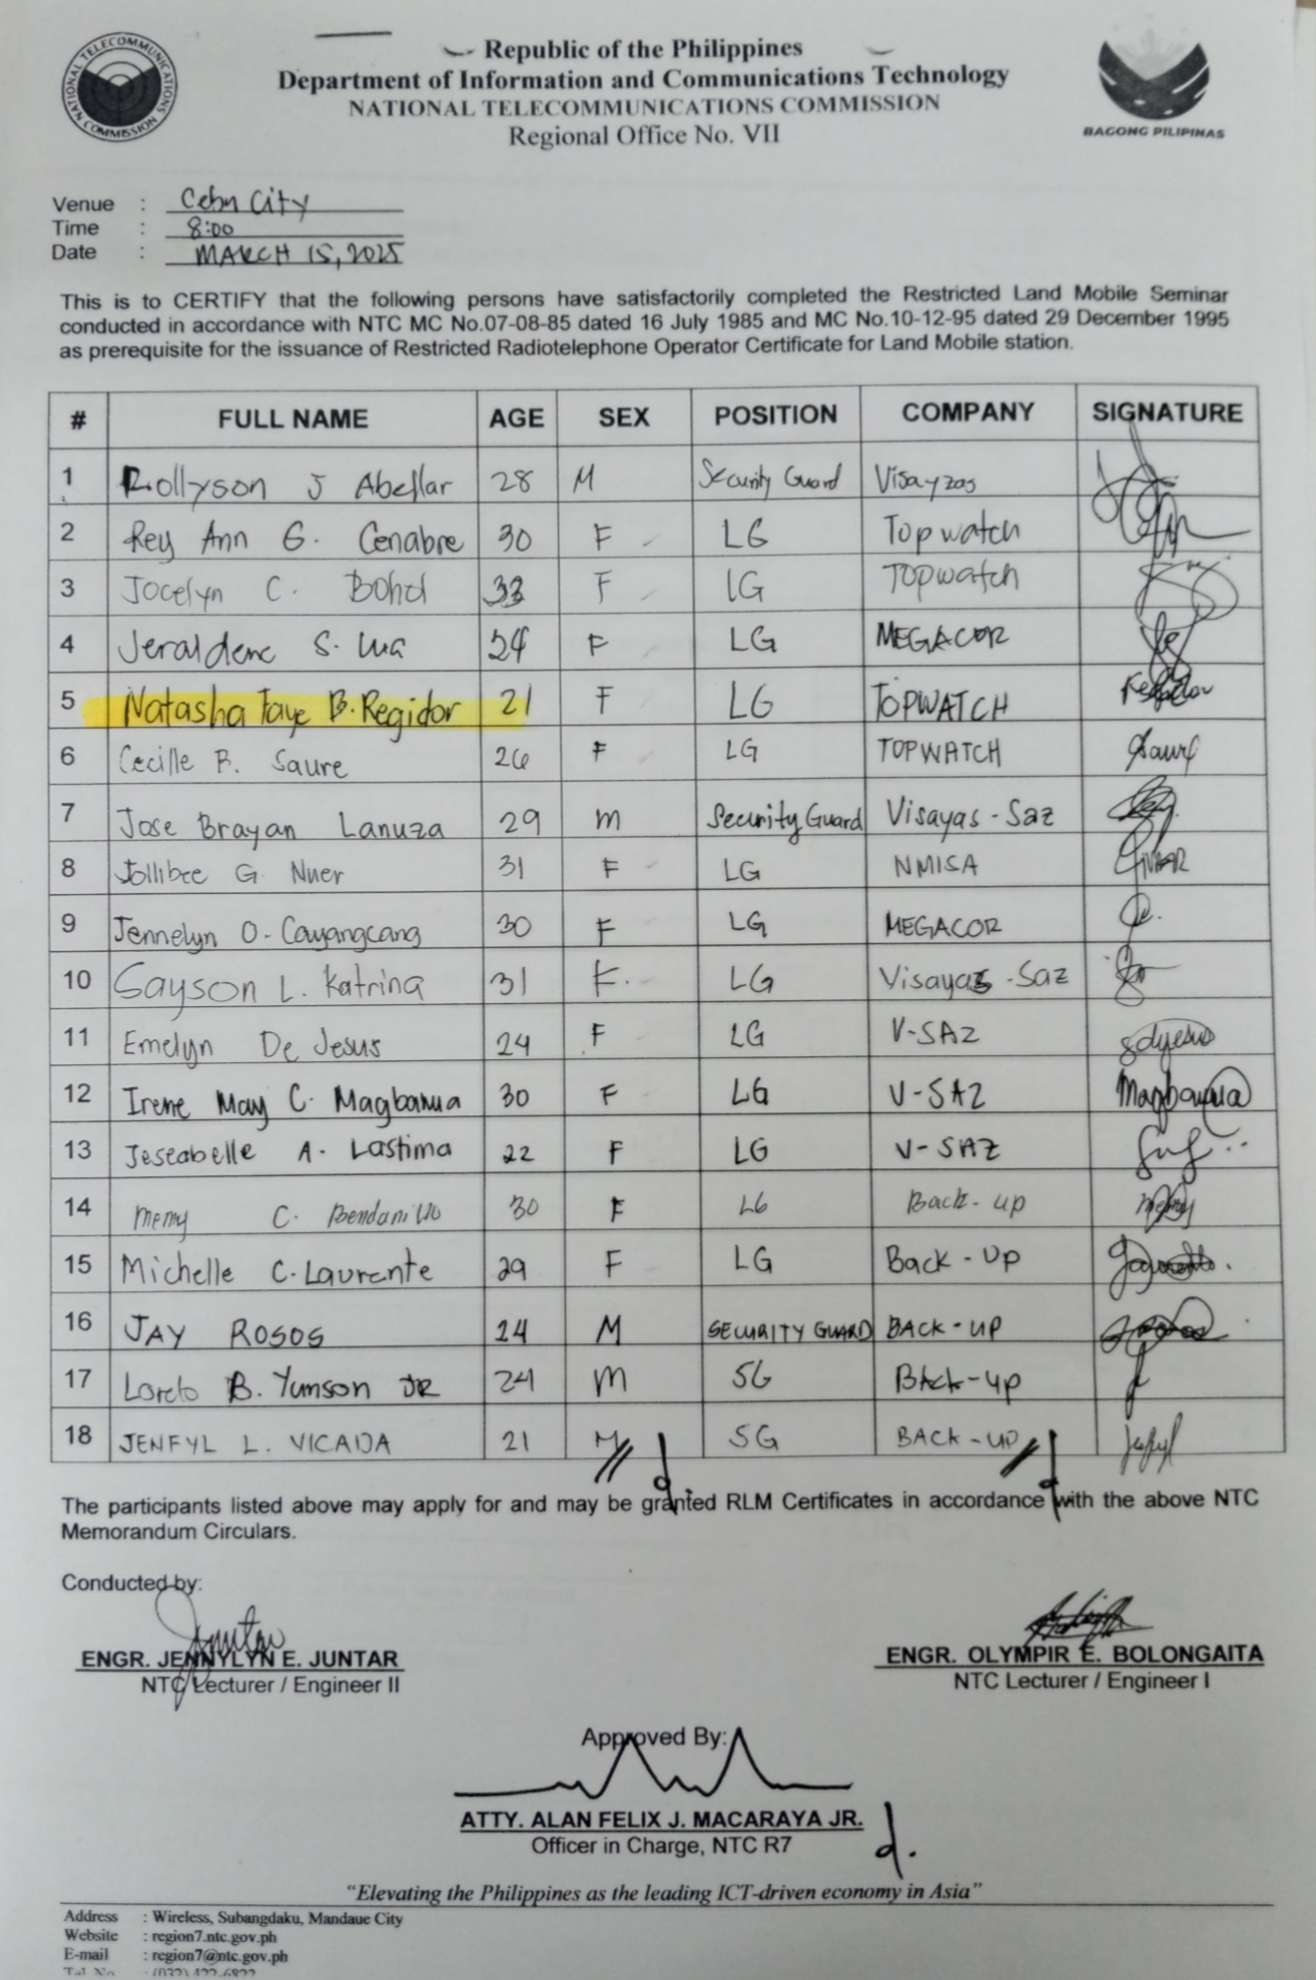 NATIONAL TELECOMMUNICATIONS COMMISSION
Republic of the Philippines
Department of Information and Communications Technology
NATIONAL TELECOMMUNICATIONS COMMISSION
Regional Office No. VII
BAGONG PILIPINAS
Venue : Cebu City
Time : 8:00
Date : MARCH 15, 2025
This is to CERTIFY that the following persons have satisfactorily completed the Restricted Land Mobile Seminar
conducted in accordance with NTC MC No.07-08-85 dated 16 July 1985 and MC No.10-12-95 dated 29 December 1995
as prerequisite for the issuance of Restricted Radiotelephone Operator Certificate for Land Mobile station.
# FULL NAME AGE SEX POSITION COMPANY SIGNATURE
1 Rollyson J Abellar 28 M Security Guard Visayzas
2 Rey Ann G. Cenabre 30 F LG Topwatch
3 Jocelyn C. Bohol 33 F LG Topwatch
4 Jeraldene S. Lua 24 F LG MEGACOR
5 Natasha Faye B. Regidor 21 F LG TOPWATCH Regidor
6 Cecille B. Saure 26 F LG TOPWATCH Saure
7 Jose Brayan Lanuza 29 M Security Guard Visayas-Saz
8 Jollibee G Nuer 31 F LG NMISA
9 Jennelyn O. Cayangcang 30 F LG MEGACOR
10 Sayson L. Katrina 31 F. LG Visayas-Saz
11 Emelyn De Jesus 24 F LG V-SAZ
12 Irene May C. Magbanua 30 F LG V-SAZ Magbanua
13 Jeseabelle A. Lastima 22 F LG V-SAZ
14 Memy C. Bendanillo 30 F LG Back-up
15 Michelle C. Laurente 29 F LG Back-Up
16 JAY ROSOS 24 M SECURITY GUARD BACK-UP
17 Loreto B. Yumson JR 24 M SG BAck-up
18 JENFYL L. VICADA 21 M SG BACK-UP
The participants listed above may apply for and may be granted RLM Certificates in accordance with the above NTC
Memorandum Circulars.
Conducted by:
ENGR. JENNYLYN E. JUNTAR
NTC Lecturer / Engineer II
ENGR. OLYMPIR E. BOLONGAITA
NTC Lecturer / Engineer I
Approved By:
ATTY. ALAN FELIX J. MACARAYA JR.
Officer in Charge, NTC R7
"Elevating the Philippines as the leading ICT-driven economy in Asia"
Address : Wireless, Subangdaku, Mandaue City
Website : region7.ntc.gov.ph
E-mail : region7@ntc.gov.ph
Tel. No. : (032) 422-6822